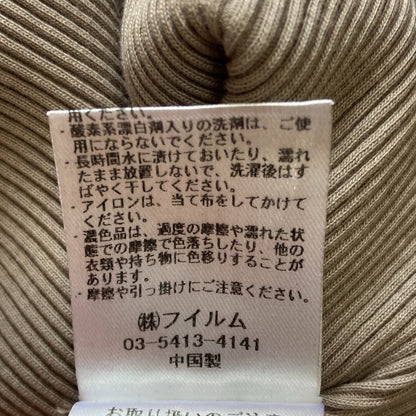 用ください。
・酸素系漂白剤入りの洗剤は、ご使
用にならないでください。
・長時間水に漬けておいたり、濡れ
たまま放置しないで、洗濯後はす
ばやく干してください。
・アイロンは、当て布をしてかけて
ください。
・濃色品は、過度の摩擦や濡れた状
態での摩擦で色落ちしたり、他の
衣類や持ち物に色移りすることが
あります。
・摩擦や引っ掛けにご注意ください。
㈱フイルム
03-5413-4141
中国製
お取り扱いのご注意